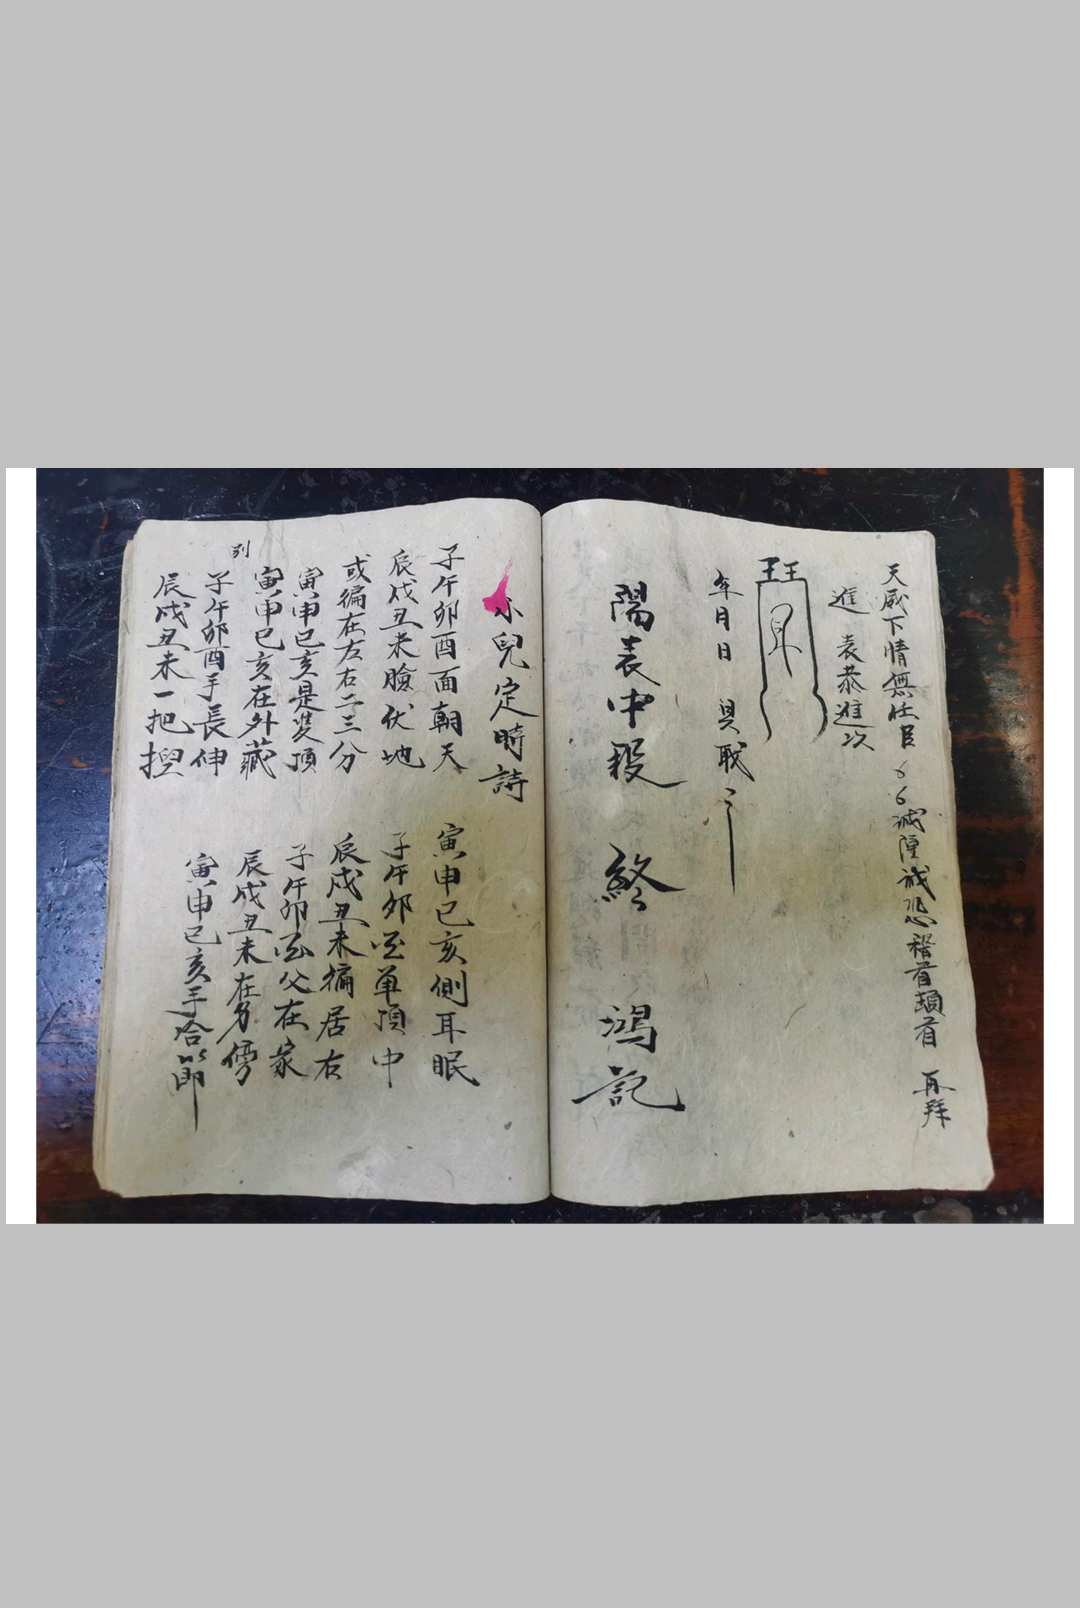 天威下情無任
誠惶誠恐稽首頓首 再拜
進 表恭進次
年月日 具職
陽表中段 終 鴻記
小兒定時詩
子午卯酉面朝天 寅申巳亥側耳眠
辰戌丑未臉伏地 子午卯酉單頂中
或徧在左右二三分 辰戌丑未徧居右
寅申巳亥是雙頂 子午卯酉父在家
别
寅申巳亥在外藏 辰戌丑未在身傍
子午卯酉手長伸 寅申巳亥手合節
辰戌丑未一把揑